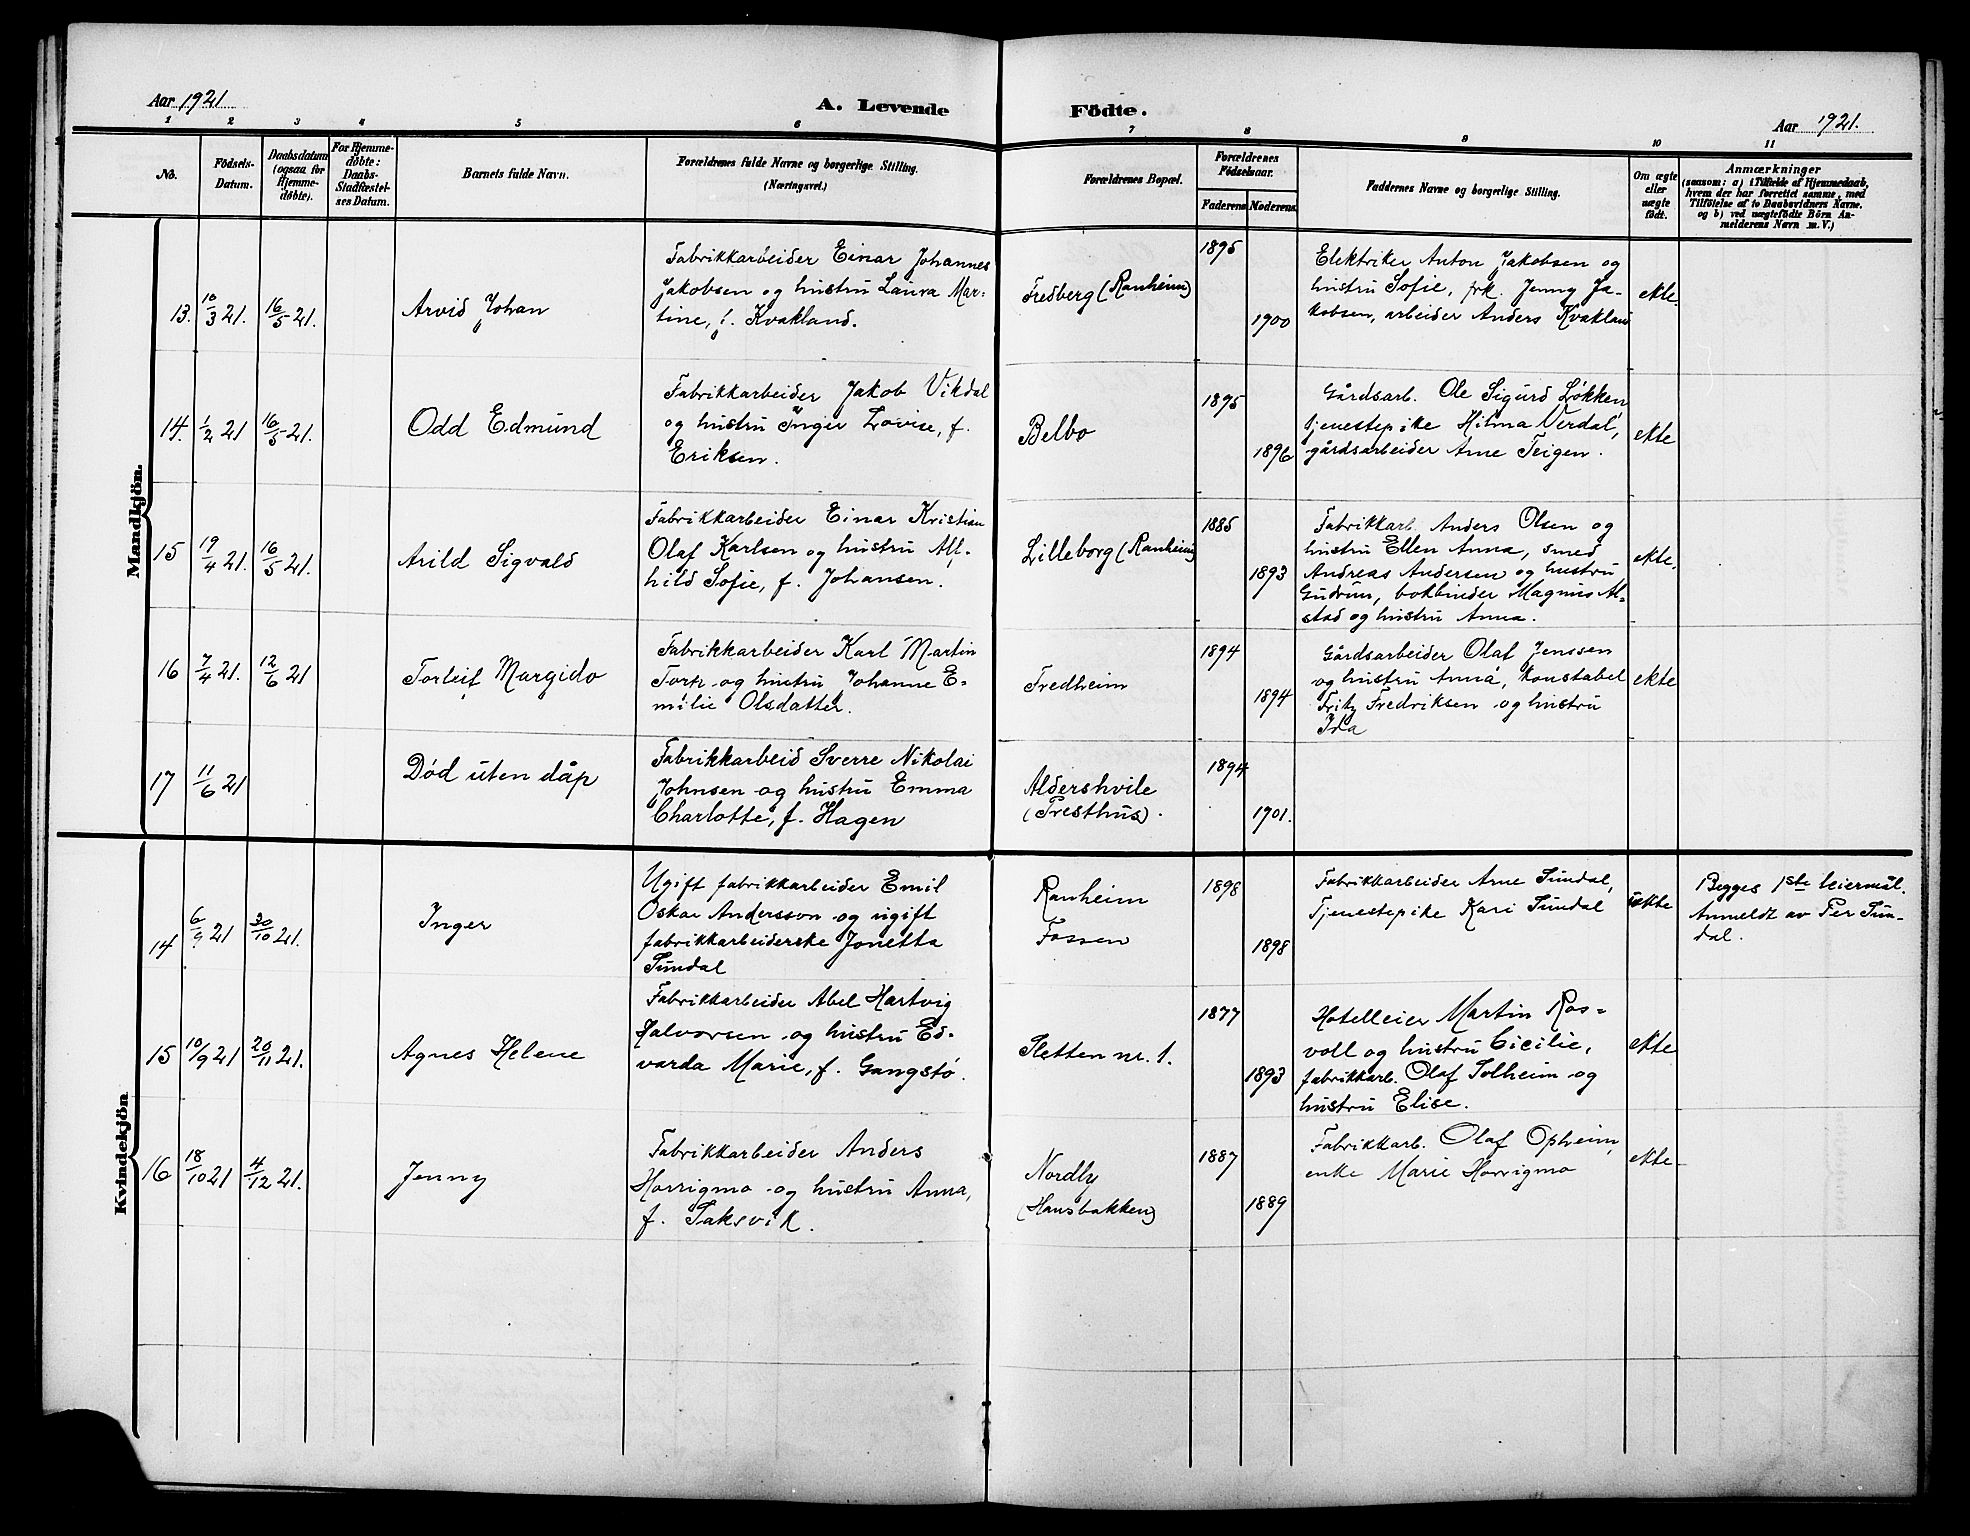 Aar 1921
A. Levende
Födte.
Aar 1921.
1 2 3 4 5 6 7 8 9 10 11
No.
Födsels-
Datum.
Daabsdatum
(ogsaa for
Hjemme-
döbte).
For Hjemme-
döbte:
Daabs-
Stadfæstel-
ses Datum.
Barnets fulde Navn.
Forældrenes fulde Navne og borgerlige Stilling.
(Næringsvei.)
Forældrenes Bopæl.
Forældrenes
Födselsaar.
Faderens Moderens
Faddernes Navne og borgerlige Stilling.
Om ægte
eller
uægte
födt.
Anmærkninger
(saasom: a) i Tilfælde af Hjemmedaab,
hvem der har forrettet samme, med
Tilföielse af to Daabsvidners Navne.
og b) ved uægtefödte Börn An-
melderens Navn m. V.)
Mandkjön.
13. 10/3 21. 16/5 21.
Arvid Johan
Fabrikkarbeider Einar Johannes
Jakobsen og hustru Laura Mar-
tine, f. Kvakland.
Fredberg (Ranheim)
1895
1900
Elektriker Anton Jakobsen og
hustru Sofie, frk. Jenny Ja-
kobsen, arbeider Anders Kvaklan
ekte
14. 1/2 21 16/5 21.
Odd Edmund
Fabrikkarbeider Jakob Vikdal
og hustru Inger Lovise, f.
Eriksen.
Belbo
1895
1896
Gårdsarb. Ole Sigurd Løkken
tjenestepike Hilma Verdal,
gårdsarbeider Arne Teigen.
ekte
15 19/4 21. 16/5 21.
Arild Sigvald
Fabrikkarbeider Einar Kristian
Olaf Karlsen og hustru Alf-
hild Sofie, f. Johansen.
Lilleborg (Ranheim)
1885
1893
Fabrikkarb. Anders Olsen og
hustru Ellen Anna, smed
Andreas Andersen og hustru
Gudrun, bokbinder Magnus Al-
stad og hustru Anna.
ekte.
16 7/4 21. 12/6 21
Torleif Margido
Fabrikkarbeider Karl Martin
Torp og hustru Johanne E-
milie Olsdatter.
Fredheim
1894
1894
Gårdsarbeider Olaf Jenssen
og hustru Anna, konstabel
Fritz Fredriksen og hustru
Ida
ekte
17 11/6 21
Død uten dåp
Fabrikkarbeid Sverre Nikolai
Johnsen og hustru Emma
Charlotte, f. Hagen
Aldershvile
(Presthus).
1894
1901.
Kvindekjön
14 6/9 21 30/10 21.
Inger
Ugift fabrikkarbeider Emil
Oskar Andersson og ugift
fabrikkarbeiderske Jonetta
Sundal
Ranheim
Fossen
1898
1898
Fabrikkarbeider Arne Sundal,
Tjenestepike Kari Sundal
uekte
Begges 1ste leiermål.
Anmeldt av Per Sun-
dal.
15 10/9 21 20/11 21.
Agnes Helene
Fabrikkarbeider Abel Hartvig
Halvorsen og hustru Ed-
varda Marie, f. Gangstø.
Sletten nr. 1.
1877
1893
Hotelleier Martin Ros-
voll og hustru Cicilie,
fabrikkarb. Olaf Solheim og
hustru Elise.
ekte
16 18/10 21 4/12 21.
Jenny
Fabrikkarbeider Anders
Horrigmo og hustru Anna,
f. Saksvik.
Nordly
(Hansbakken)
1887
1889
Fabrikkarb. Olaf Opheim,
enke Marie Horrigmo
ekte